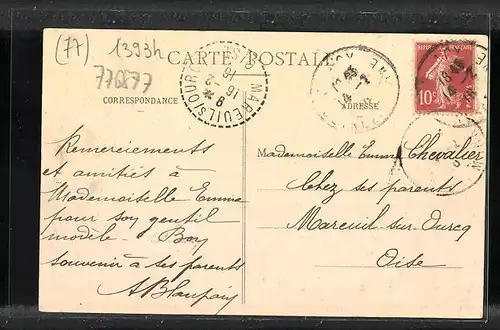 (77)
1393h
776877
CARTE POSTALE
CORRESPONDANCE
ADRESSE
MAREUIL S/OURCQ
8 * 2
16
RÉPUBLIQUE FRANÇAISE
10c
Remerciements
et amitiés à
Mademoiselle Emma
pour son gentil
modèle - Bon
souvenir à ses parents
Mademoiselle Emma Chevalier
Chez ses parents
Mareuil-sur-Ourcq
Oise